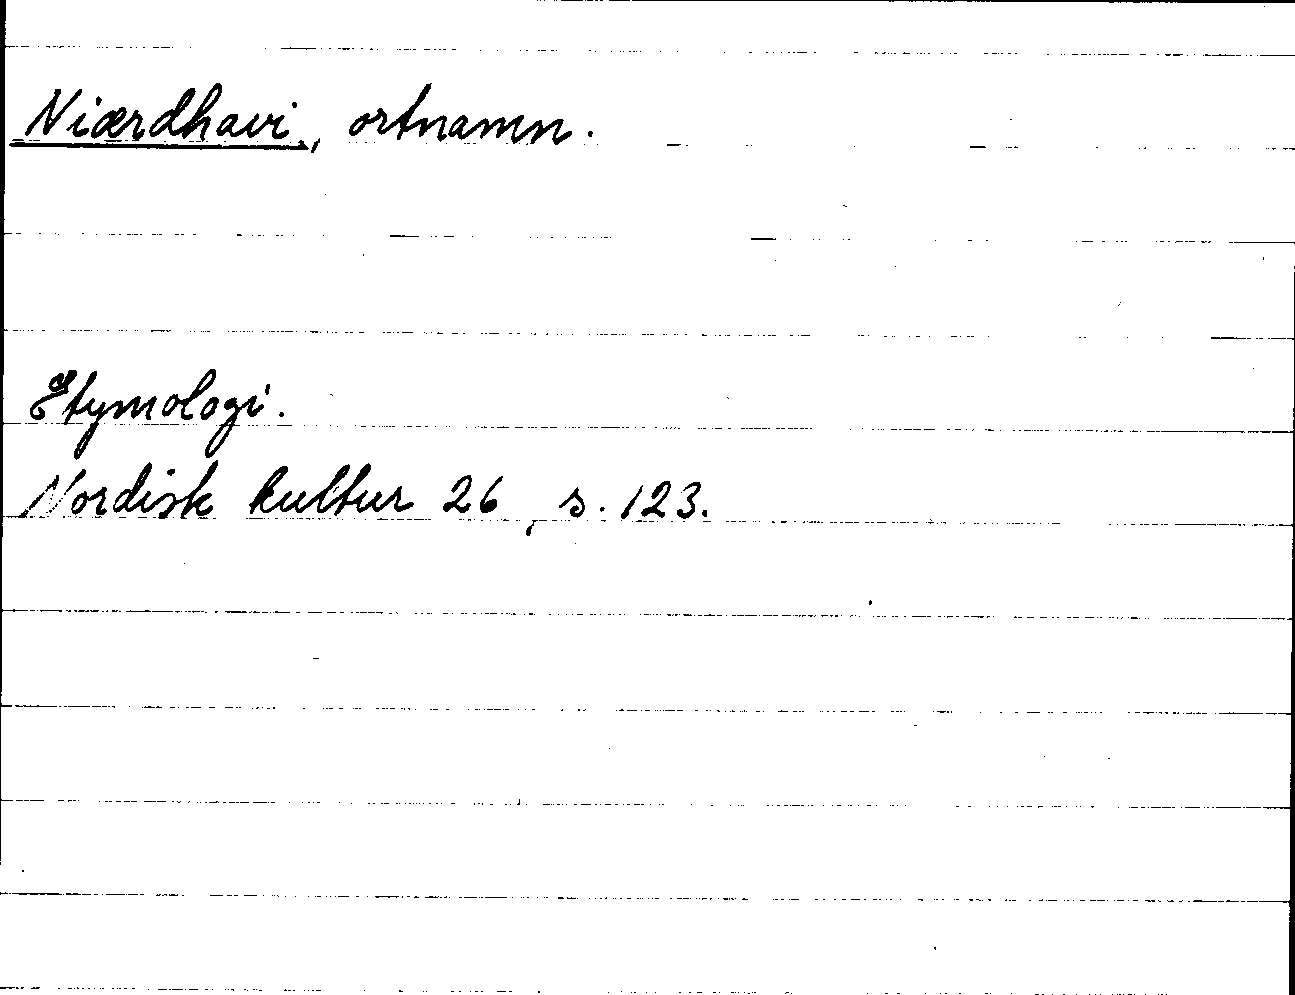 Niærdhavi, ortnamn.
Etymologi.
Nordisk kultur 26, s. 123.